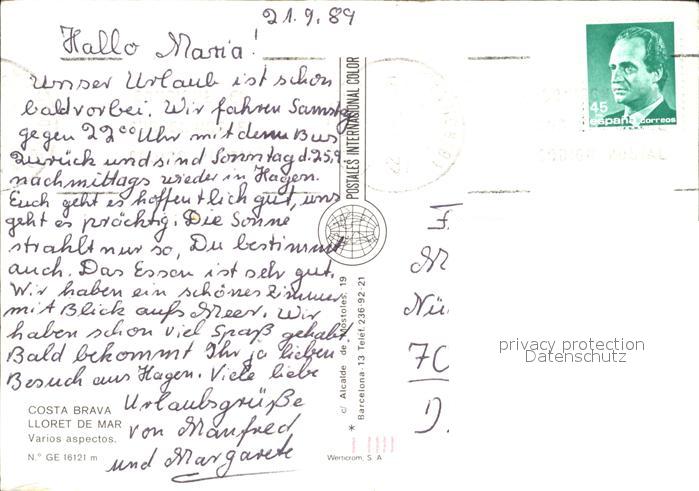 21.9.89
Hallo Maria!
Unser Urlaub ist schon
bald vorbei. Wir fahren Samstg
gegen 22⁰⁰ Uhr mit dem Bus
zurück und sind Sonntag d. 25.9
nachmittags wieder in Hagen.
Euch geht es hoffentlich gut, uns
geht es prächtig. Die Sonne
strahlt nur so, Du bestimmt
auch. Das Essen ist sehr gut.
Wir haben ein schönes Zimmer
mit Blick aufs Meer. Wir
haben schon viel Spaß gehabt
Bald bekommt Ihr ja lieben
Besuch aus Hagen. Viele liebe
Urlaubsgrüße
von Manfred
und Margarete
COSTA BRAVA
LLORET DE MAR
Varios aspectos.
N.° GE 16121 m
POSTALES INTERNATIONAL COLOR
c/ Alcalde de Mostoles, 19
* Barcelona-13 Teléf. 236-92-21
Werticrom, S. A
45
españa correos
F.N.M.T.
CODIGO POSTAL
M
Nü
70
D.
privacy protection
Datenschutz